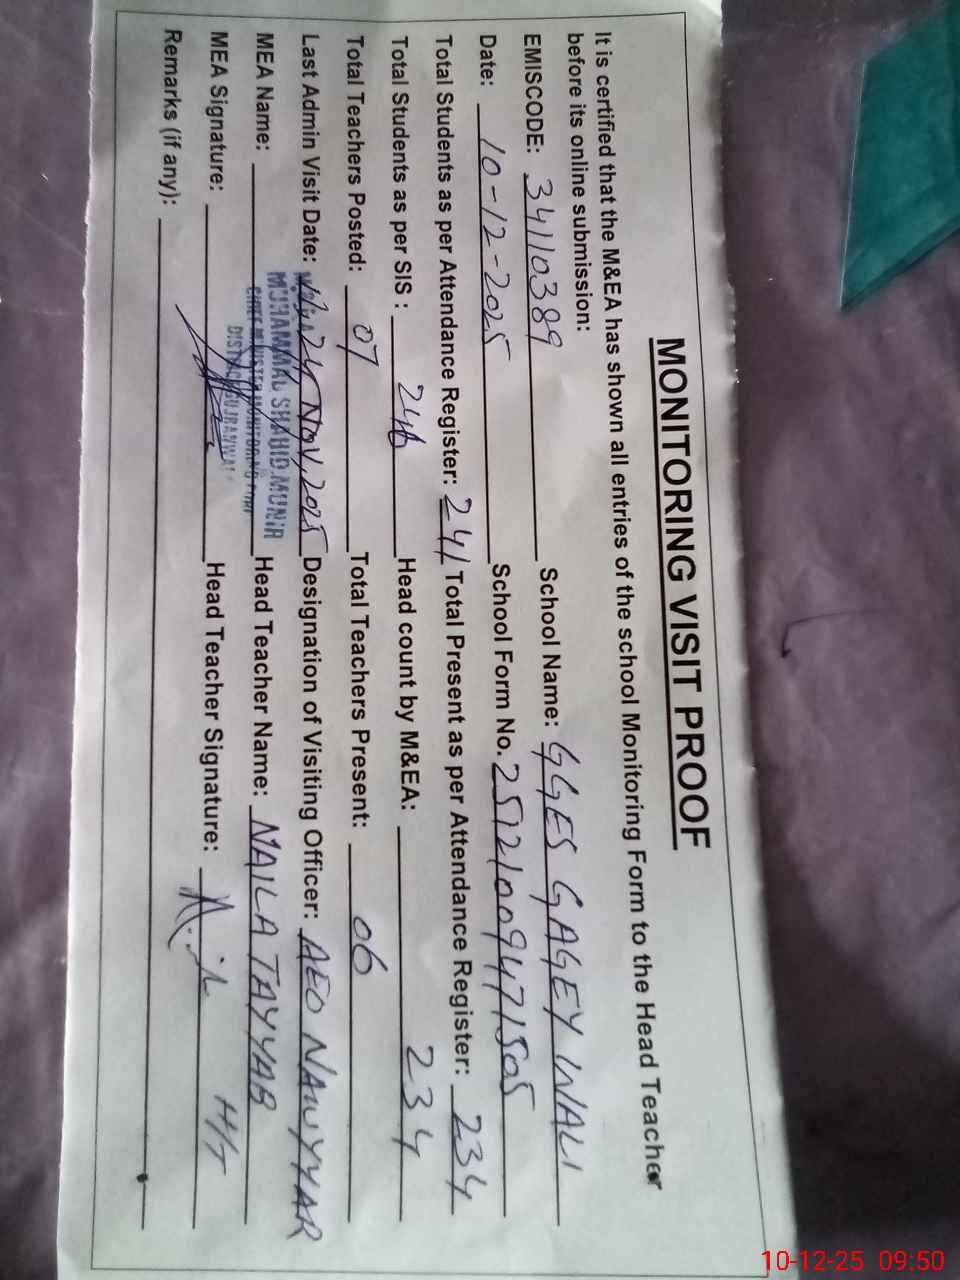 MONITORING VISIT PROOF
It is certified that the M&EA has shown all entries of the school Monitoring Form to the Head Teacher
before its online submission:
EMISCODE: 34110389 School Name: GGES GAGEY WALI
Date: 10-12-2025 School Form No. 25121009471505
Total Students as per Attendance Register: 241 Total Present as per Attendance Register: 234
Total Students as per SIS : 246 Head count by M&EA: 234
Total Teachers Posted: 07 Total Teachers Present: 06
Last Admin Visit Date: 24 Nov, 2025 Designation of Visiting Officer: AEO NAWYYAR
MEA Name: MUHAMMAD SHAHID MUNIR Head Teacher Name: NAILA TAYYAB
CHIEF MINISTER MONITORING FORCE
MEA Signature: Head Teacher Signature: H/T
Remarks (if any):
10-12-25 09:50